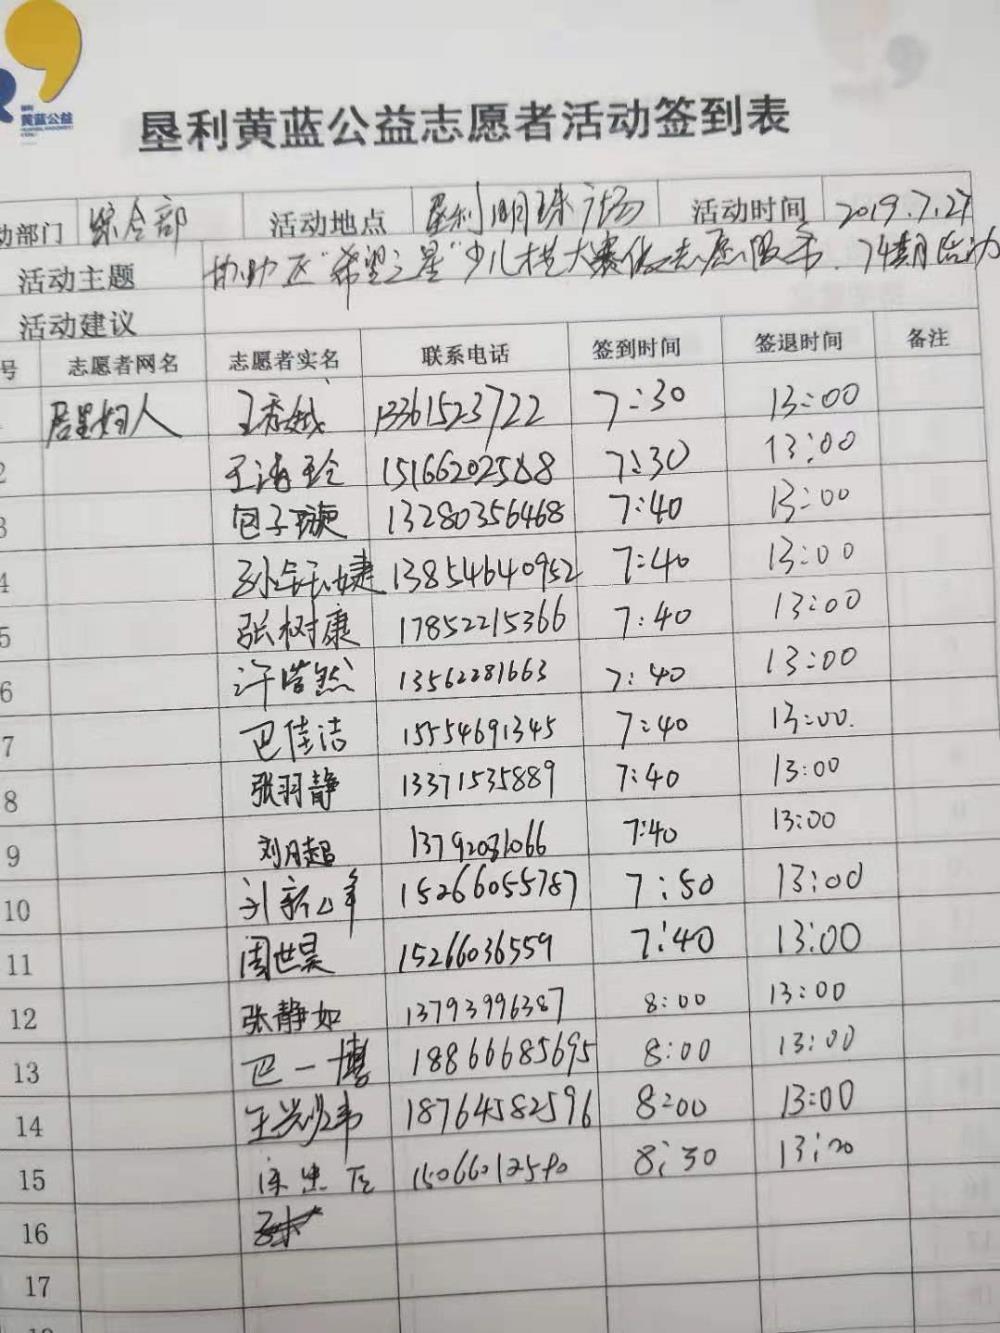 黄蓝公益
垦利黄蓝公益志愿者活动签到表
动部门 综合部 活动地点 垦利明珠广场 活动时间 2019.7.27
活动主题 协助区"希望之星"少儿模大赛做志愿服务.74期活动
活动建议
号 志愿者网名 志愿者实名 联系电话 签到时间 签退时间 备注
王秀娥 13361523722 7:30 13:00
2 王海玲 15166202588 7:30 13:00
3 包子璇 13280356468 7:40 13:00
4 孙钰婕 13854640952 7:40 13:00
5 张树康 17852215366 7:40 13:00
6 许浩然 13562281663 7:40 13:00
7 巴佳洁 15554691345 7:40 13:00.
8 张羽静 13371535889 7:40 13:00
9 刘月超 13792081066 7:40 13:00
10 刘新峰 15266055787 7:50 13:00
11 周世昊 15266036559 7:40 13:00
12 张静如 13793996387 8:00 13:00
13 巴一博 18866685695 8:00 13:00
14 王 18764582596 8:00 13:00
15 15066012590 8:30 13:20
16
17